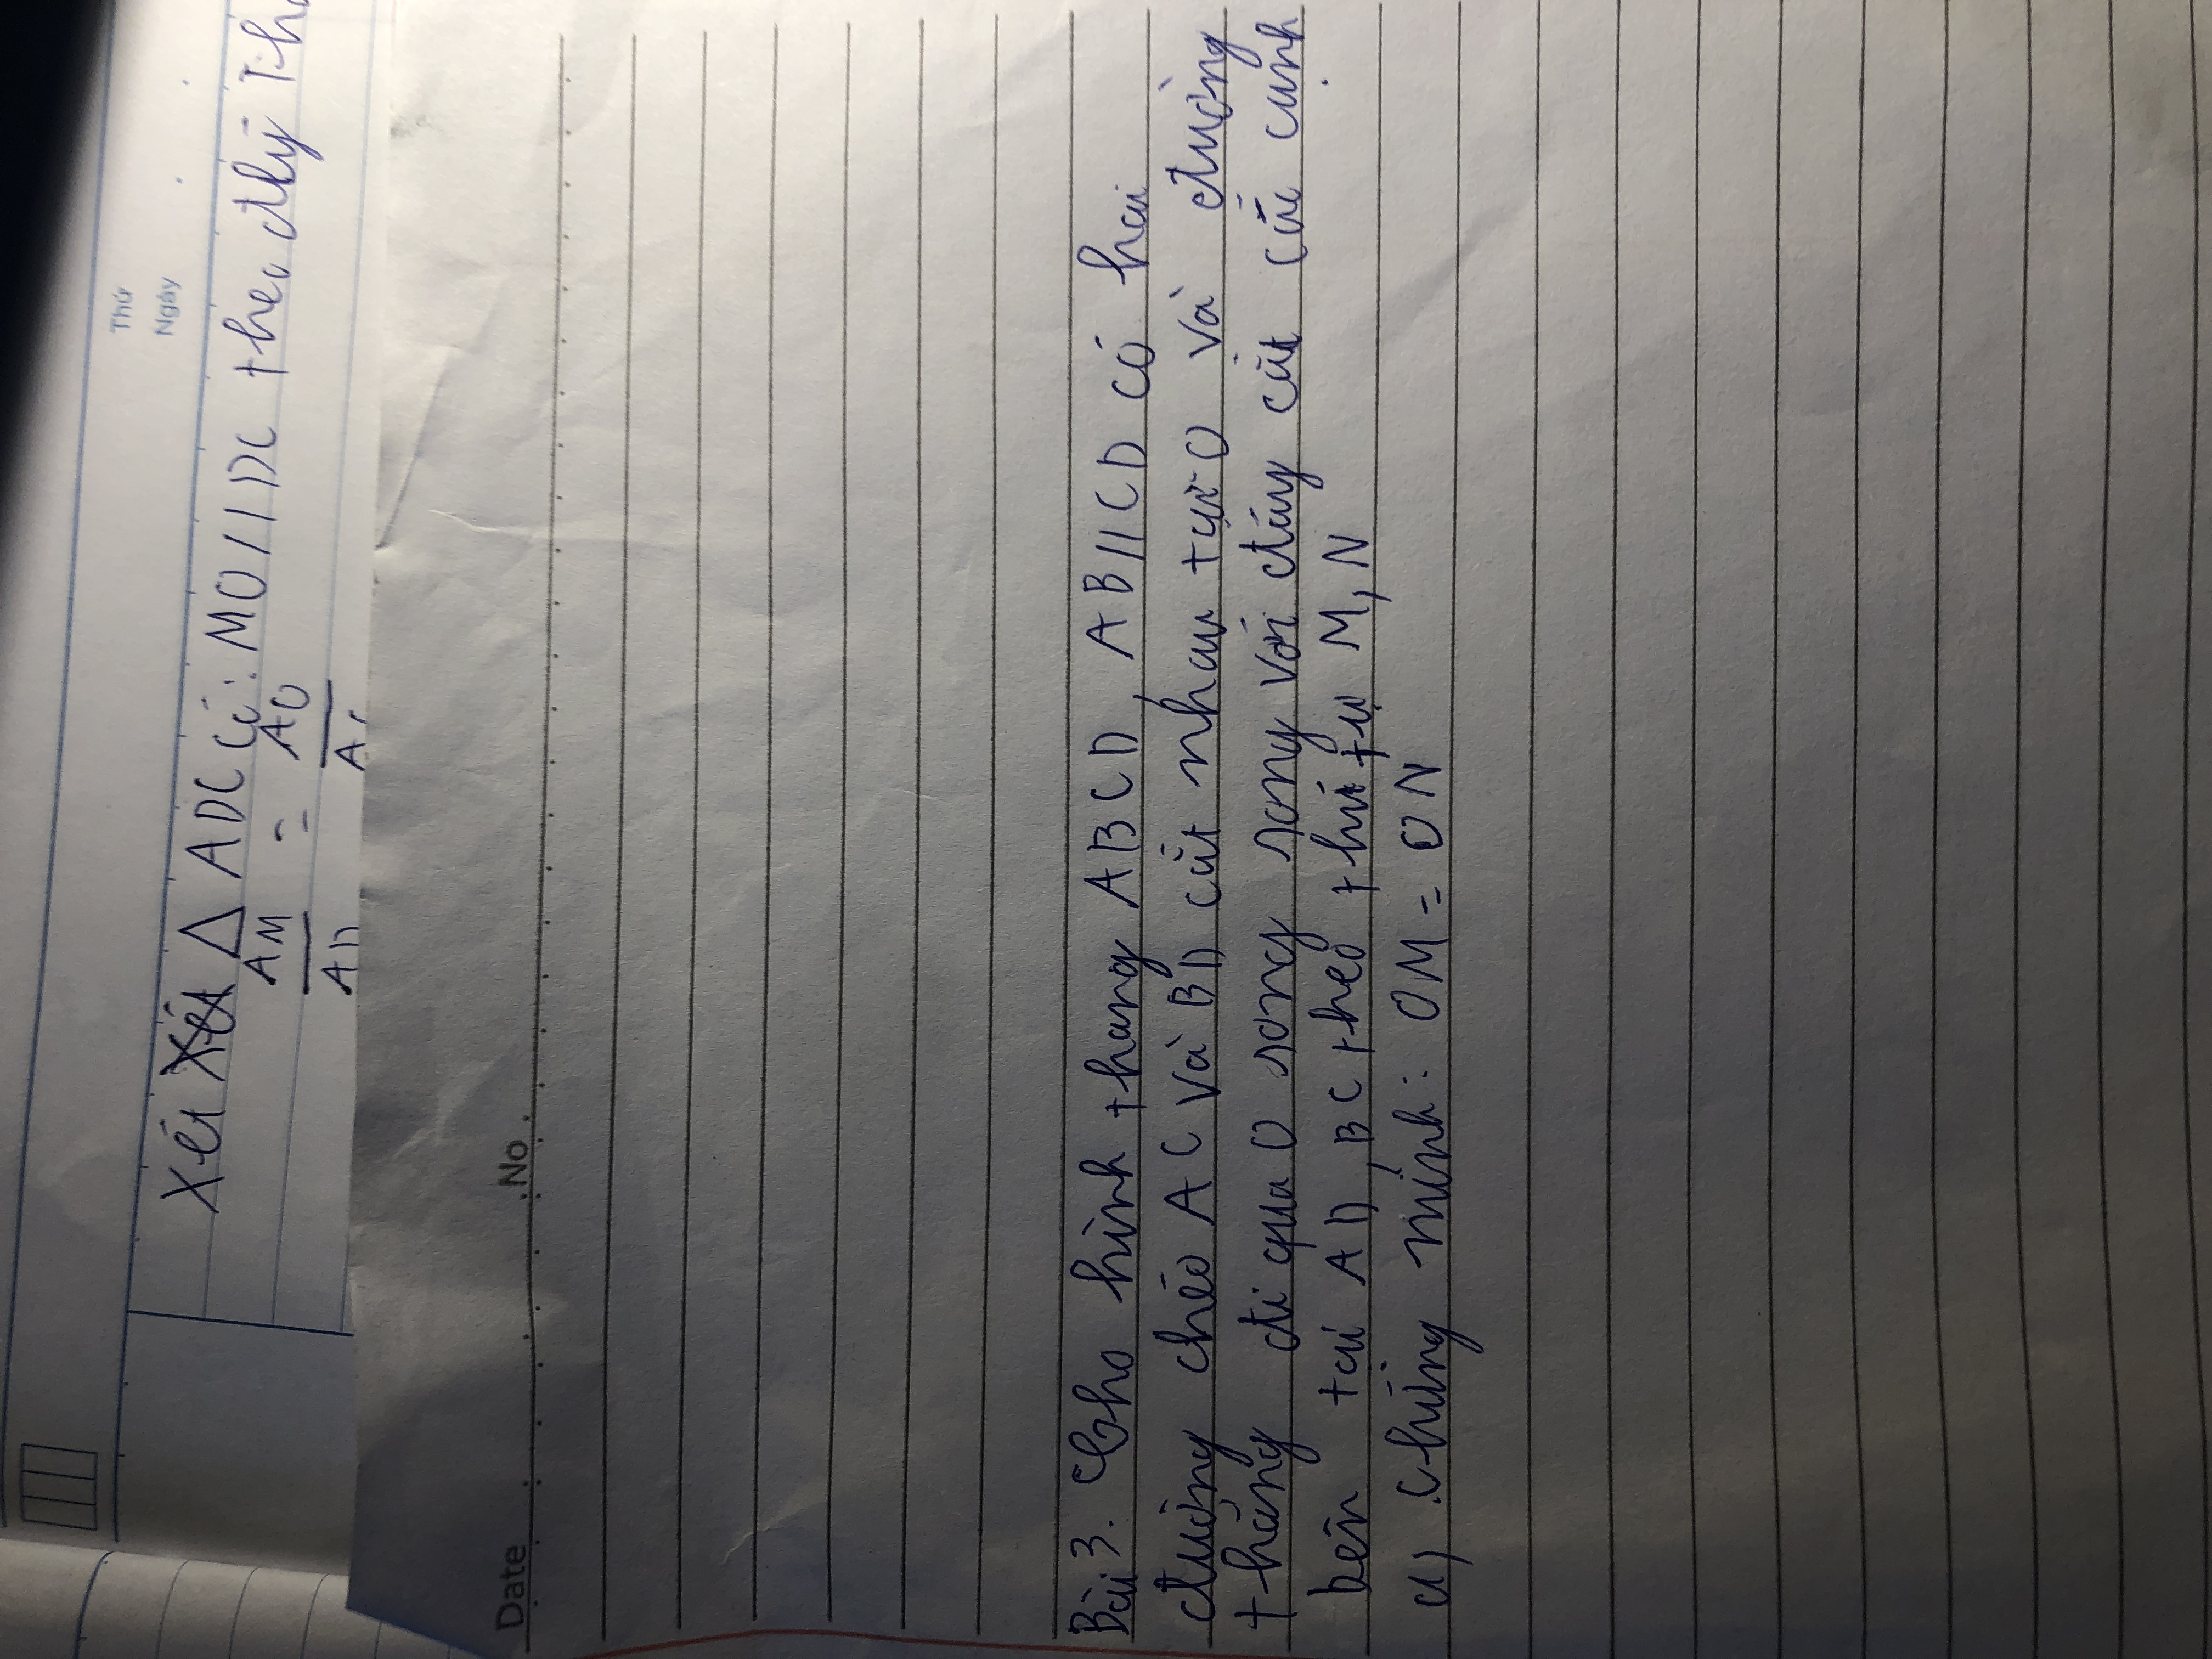 Thứ
Ngày
Xét Xét Δ ADC có: MO // DC theo đlý Thа
AM = AO
AD AC
Date No
Bài 3. Cho hình thang ABCD, AB//CD có hai
đường chéo AC và BD cắt nhau tại O và đường
thẳng đi qua O song song với đáy cắt các cạnh
bên tại AD, BC theo thứ tự M, N
a) Chứng minh: OM = ON